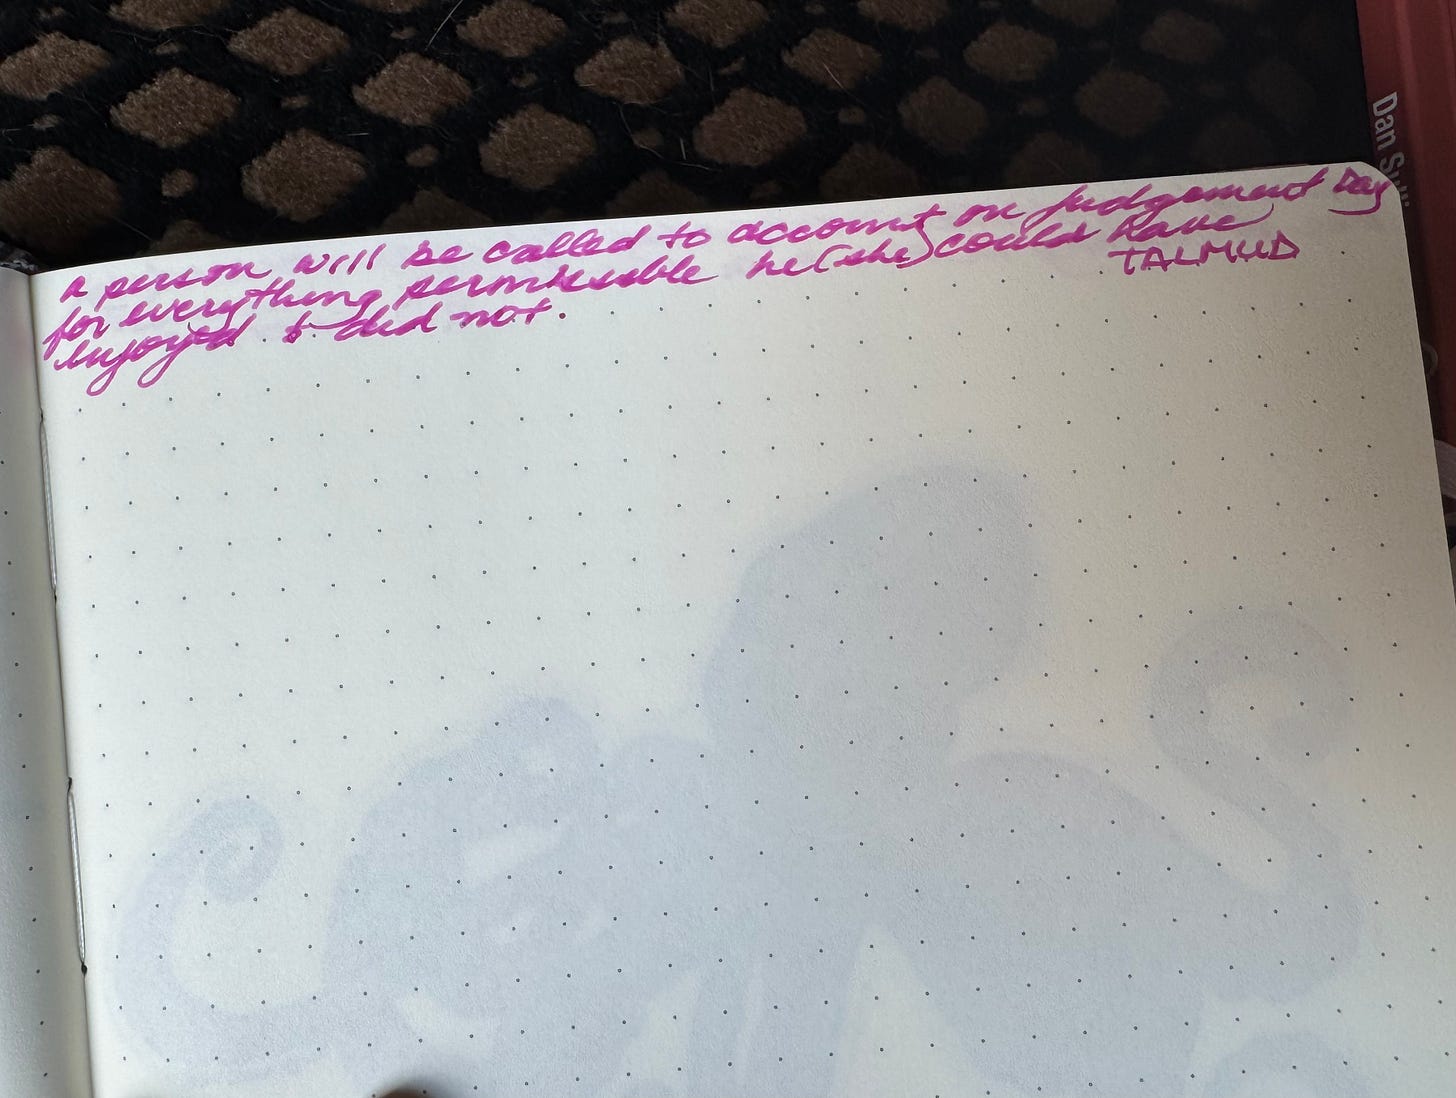 a person will be called to account on judgement Day
for everything permissable he (she) could have
enjoyed & did not.
TALMUD
Dan